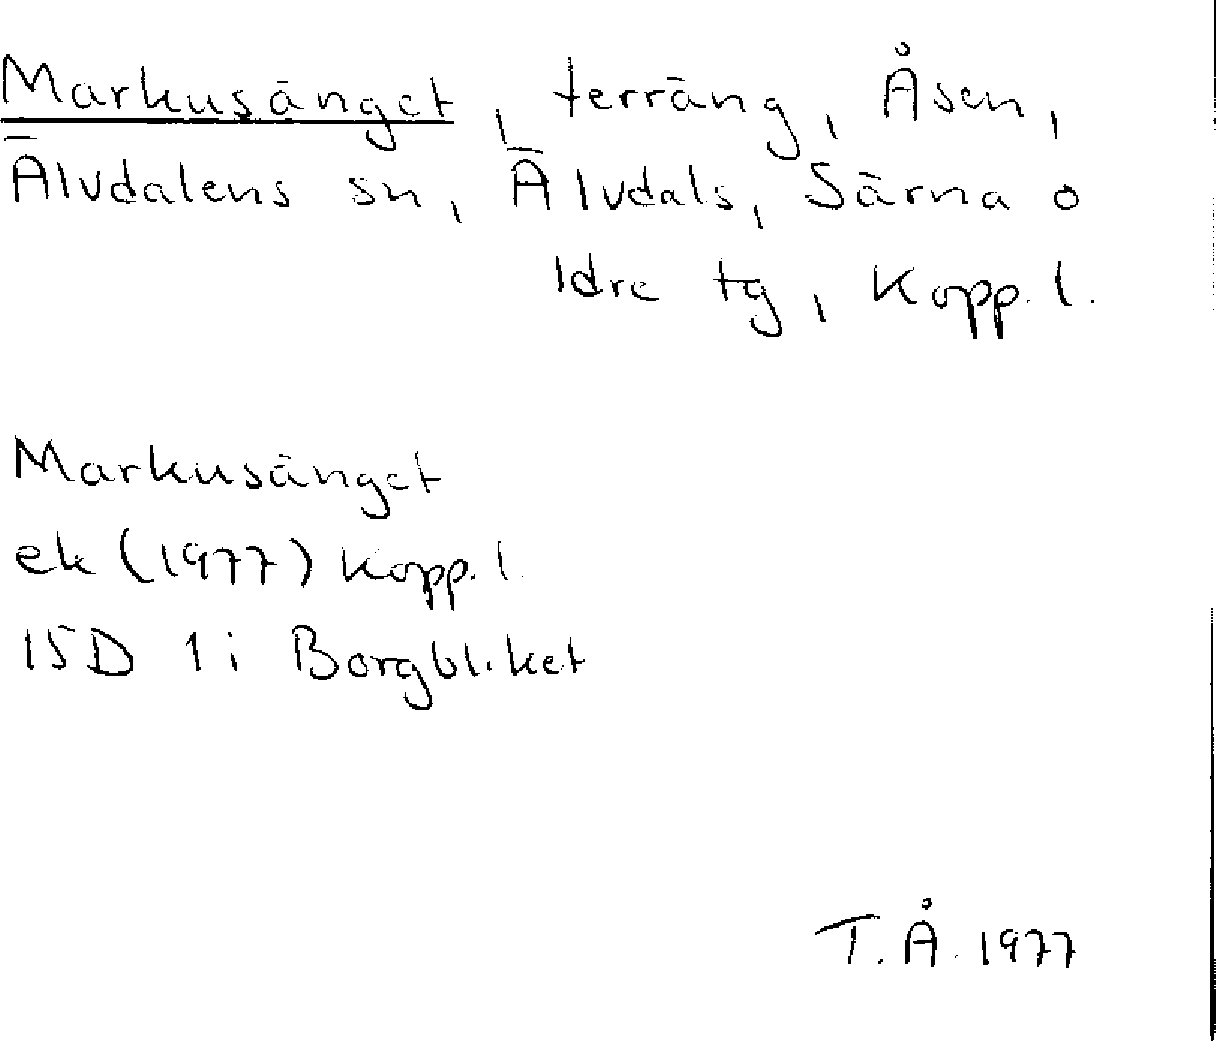 Markusänget, terräng, Åsen,
Älvdalens sn, Älvdals, Särna o
Idre tg, Kopp. l.
Markusänget
ek (1977) Kopp. l.
15D 1i Borgbliket
T.Å. 1977